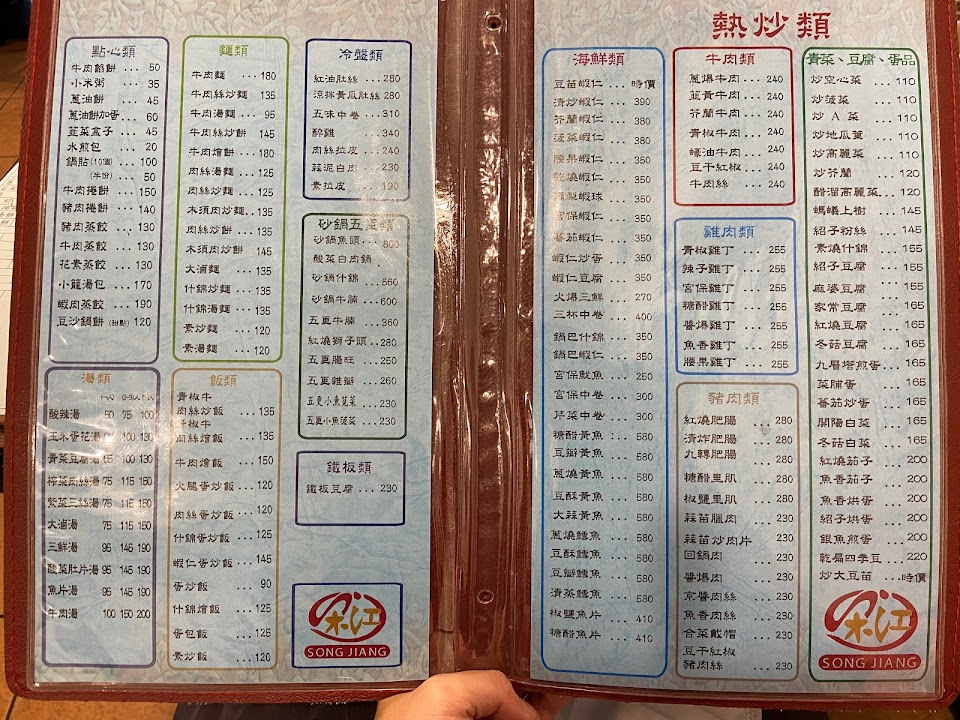 點心類
牛肉餡餅 ... 50
小米粥 ... 35
蔥油餅 ... 45
蔥油餅加蛋 ... 60
韮菜盒子 ... 45
水煎包 ... 20
鍋貼(10個) ... 100
(半份) ... 50
牛肉捲餅 ... 150
豬肉捲餅 ... 140
豬肉蒸餃 ... 130
牛肉蒸餃 ... 130
花素蒸餃 ... 130
小籠湯包 ... 170
蝦肉蒸餃 ... 190
豆沙鍋餅(甜點) 120
麵類
牛肉麵 ... 180
牛肉絲炒麵 135
牛肉湯麵 ... 95
牛肉絲炒餅 145
牛肉燴餅 ... 180
肉絲湯麵 ... 125
肉絲炒麵 ... 125
木須肉炒麵 .. 135
肉絲炒餅 ... 135
木須肉炒餅 145
大滷麵 ... 135
什錦炒麵 ... 135
什錦湯麵 ... 135
素炒麵 ... 120
素湯麵 ... 120
冷盤類
紅油肚絲 ... 280
涼拌黃瓜肚絲 280
五味中卷 ... 310
醉雞 ... 340
肉絲拉皮 ... 240
蒜泥白肉 ... 230
素拉皮 ... 190
砂鍋五更類
砂鍋魚頭 ... 800
酸菜白肉鍋
砂鍋什錦 ... 560
砂鍋牛腩 ... 600
五更牛腩 ... 360
紅燒獅子頭 .. 280
五更腸旺 ... 250
五更雜瓣 ... 260
五更小魚莧菜 ... 230
五更小魚菠菜 ... 230
鐵板類
鐵板豆腐 ... 230
湯類
酸辣湯 50 75 100
玉米蛋花湯 100 130
青菜豆腐湯 100 130
榨菜肉絲湯 75 115 150
紫菜三絲湯 75 115 150
大滷湯 75 115 150
三鮮湯 95 145 190
酸菜肚片湯 95 145 190
魚片湯 95 145 190
牛肉湯 100 150 200
飯類
青椒牛
肉絲炒飯 ... 135
青椒牛
肉絲燴飯 ... 135
牛肉燴飯 ... 150
火腿蛋炒飯 ... 120
肉絲蛋炒飯 ... 120
什錦蛋炒飯 ... 125
蝦仁蛋炒飯 ... 145
蛋炒飯 ... 90
什錦燴飯 ... 125
蛋包飯 ... 125
素炒飯 ... 120
SONG JIANG
熱炒類
海鮮類
豆苗蝦仁 ... 時價
清炒蝦仁 ... 390
芥蘭蝦仁 ... 380
菠菜蝦仁 ... 380
腰果蝦仁 ... 350
乾燒蝦仁 ... 350
鳳梨蝦球 ... 350
宮保蝦仁 ... 350
蕃茄蝦仁 ... 350
蝦仁炒蛋 ... 350
蝦仁豆腐 ... 350
火爆三鮮 ... 270
三杯中卷 ... 400
鍋巴什錦 ... 350
鍋巴蝦仁 ... 350
宮保魷魚 ... 250
宮保中卷 ... 300
芹菜中卷 ... 300
糖醋黃魚 ... 580
豆瓣黃魚 ... 580
蔥燒黃魚 ... 580
豆酥黃魚 ... 580
大蒜黃魚 ... 580
蔥燒鱈魚 ... 580
豆酥鱈魚 ... 580
豆瓣鱈魚 ... 580
清蒸鱈魚 ... 580
椒鹽魚片 ... 410
糖醋魚片 ... 410
牛肉類
蔥爆牛肉 ... 240
韮黃牛肉 ... 240
芥蘭牛肉 ... 240
青椒牛肉 ... 240
蠔油牛肉 ... 240
豆干紅椒 ... 240
牛肉絲 ... 240
雞肉類
青椒雞丁 ... 255
辣子雞丁 ... 255
宮保雞丁 ... 255
糖醋雞丁 ... 255
醬爆雞丁 ... 255
魚香雞丁 ... 255
腰果雞丁 ... 255
豬肉類
紅燒肥腸 ... 280
清炸肥腸 ... 280
九轉肥腸 ... 280
糖醋里肌 ... 260
椒鹽里肌 ... 260
蒜苗臘肉 ... 230
蒜苗炒肉片 230
回鍋肉 ... 230
醬爆肉 ... 230
京醬肉絲 ... 230
魚香肉絲 ... 230
合菜戴帽 ... 230
豆干紅椒
豬肉絲 ... 230
青菜、豆腐、蛋品
炒空心菜 ... 110
炒菠菜 ... 110
炒 A 菜 ... 110
炒地瓜葉 ... 110
炒高麗菜 ... 110
炒芥蘭 ... 120
醋溜高麗菜 .. 120
螞蟻上樹 ... 145
紹子粉絲 ... 145
素燒什錦 ... 155
紹子豆腐 ... 155
麻婆豆腐 ... 155
家常豆腐 ... 165
紅燒豆腐 ... 165
冬菇豆腐 ... 165
九層塔煎蛋 ... 165
菜脯蛋 ... 165
蕃茄炒蛋 ... 165
開陽白菜 ... 165
冬菇白菜 ... 165
紅燒茄子 ... 200
魚香茄子 ... 200
魚香烘蛋 ... 200
紹子烘蛋 ... 200
銀魚煎蛋 ... 200
乾扁四季豆 ... 220
炒大豆苗 ... 時價
SONG JIANG